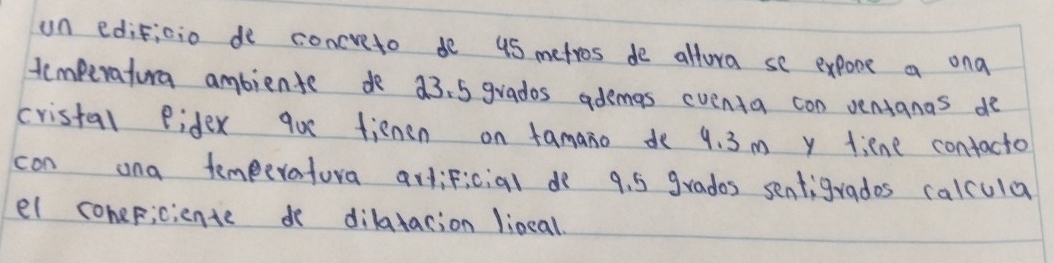 un edificio de concreto de 45 metros de altura se expone a una
temperatura ambiente de 23.5 grados ademas cuenta con ventanas de
cristal Pidex que tienen un tamaño de 4.3 m y tiene contacto
con una temperatura artificial de 9.5 grados sentigrados calcula
el coheficiente de dilatacion lineal.